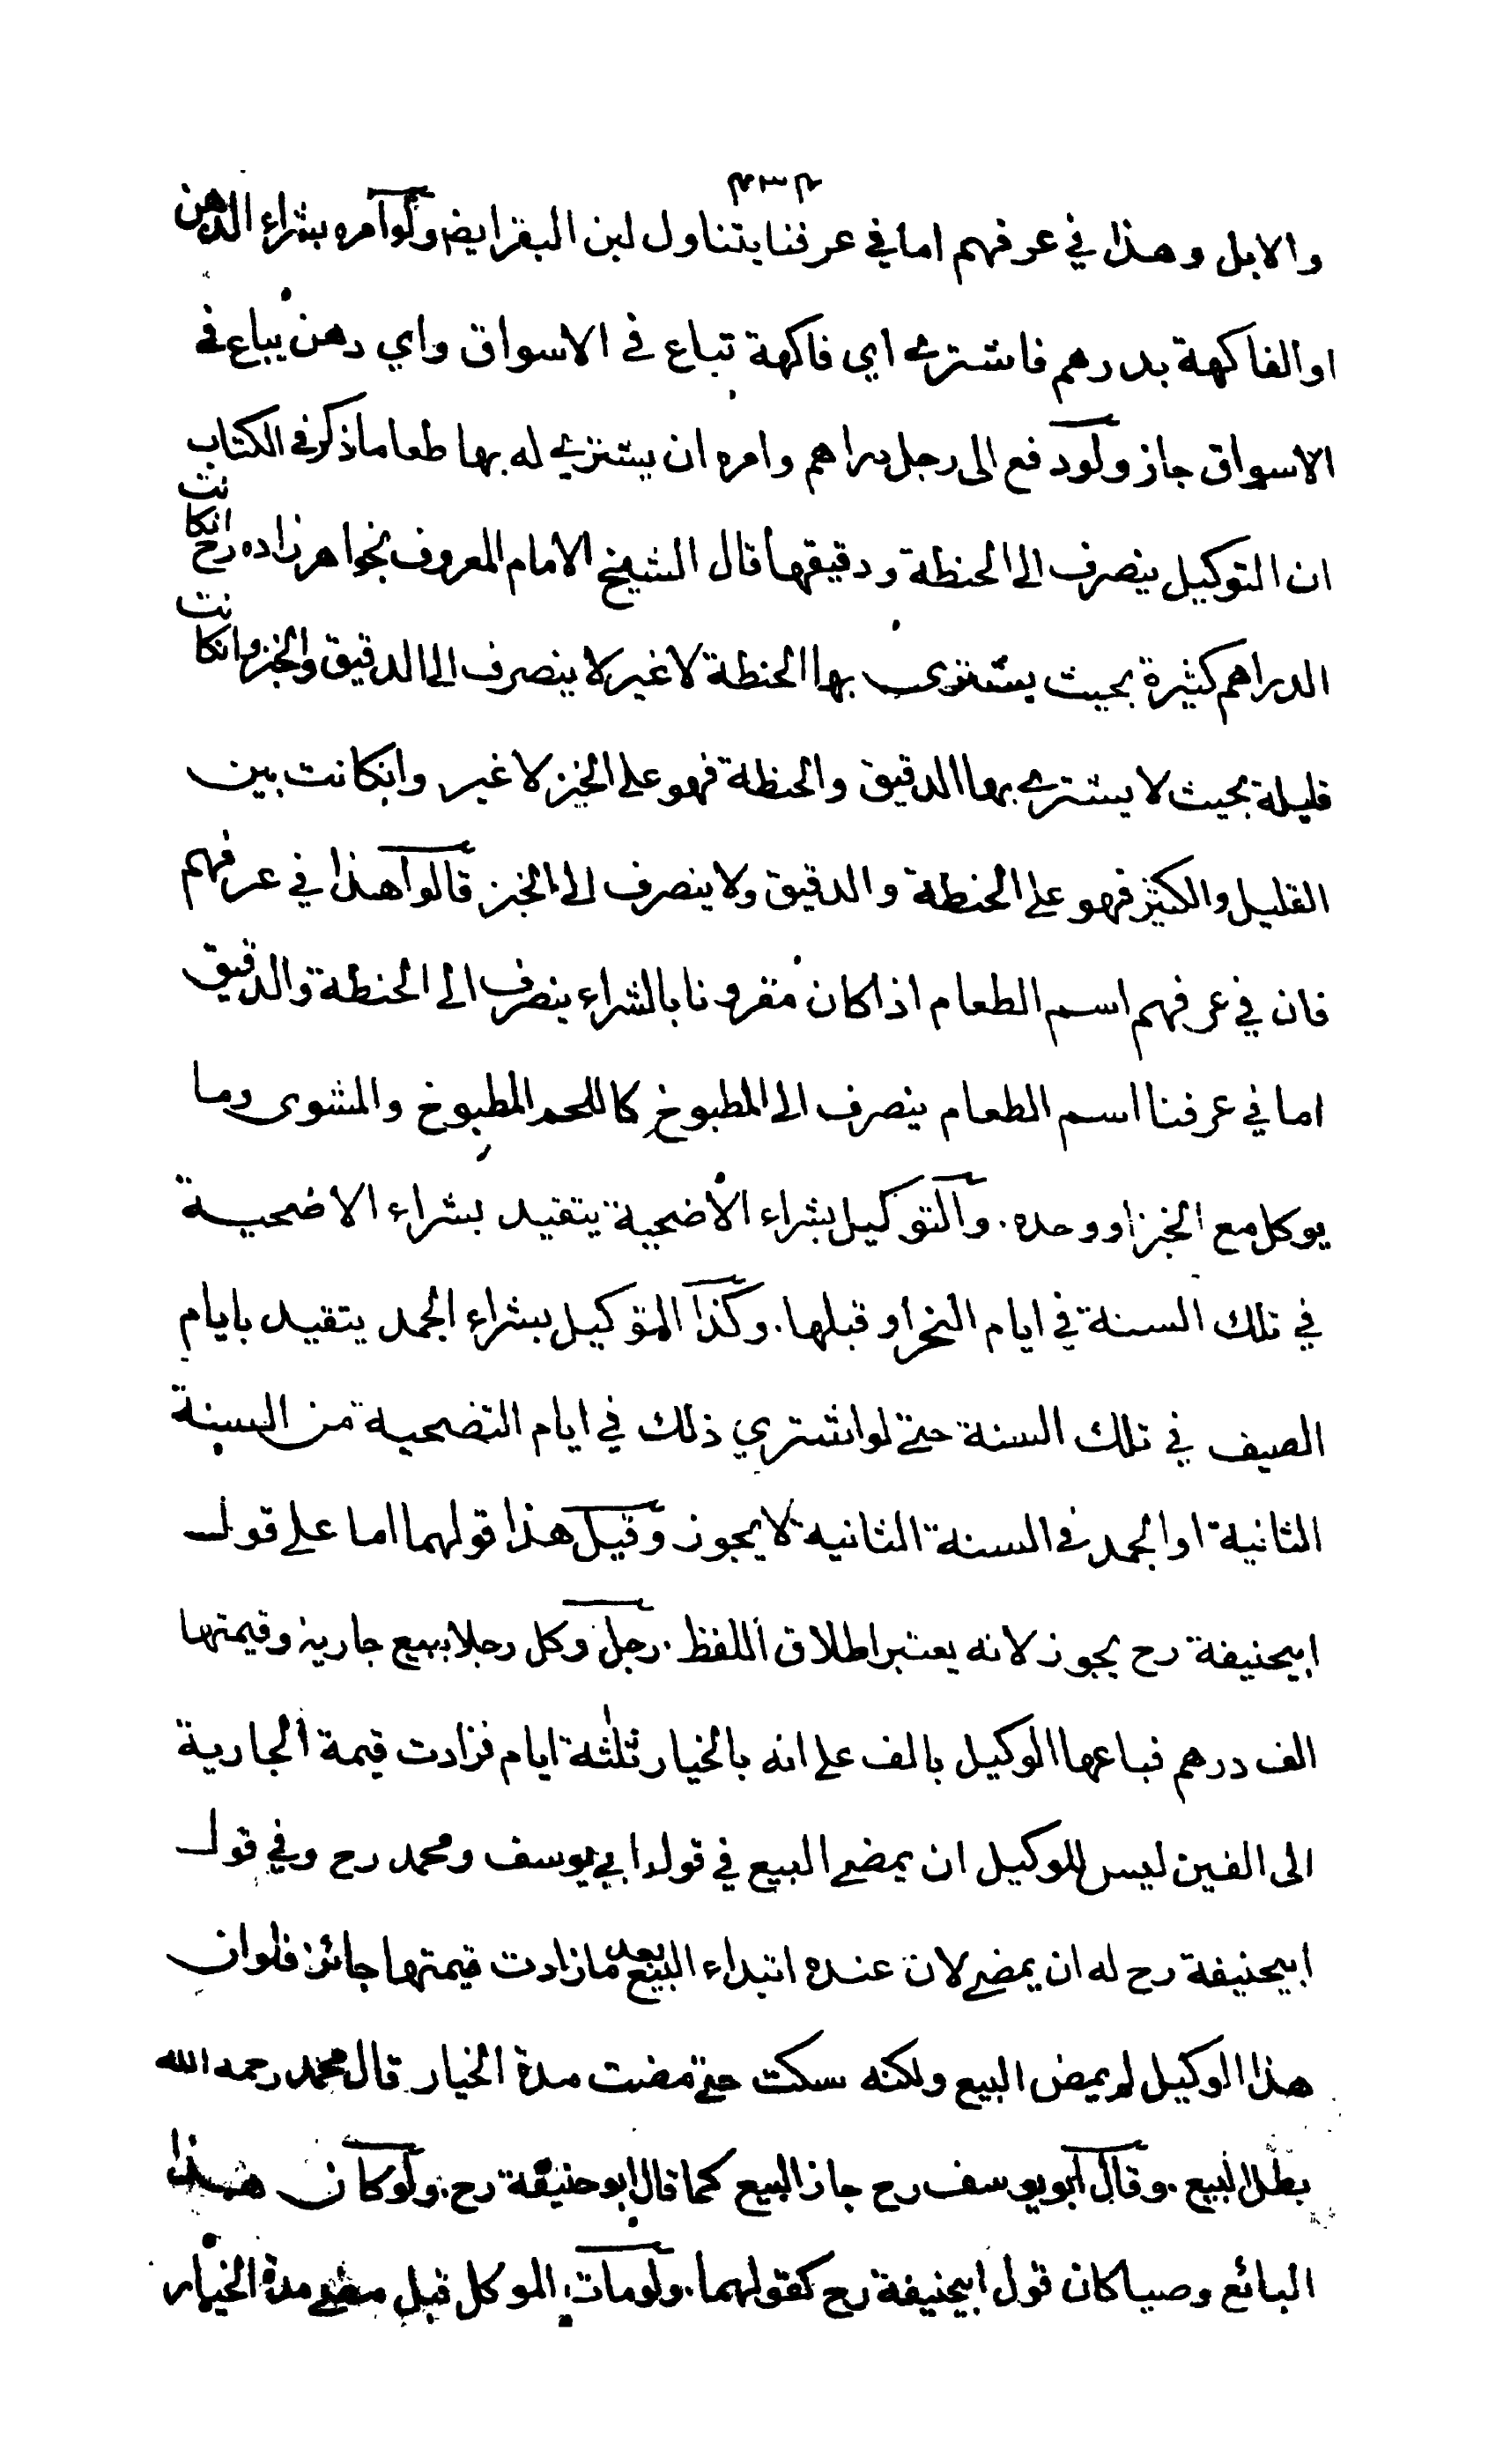 ٤٣٤
والابل وهذا في عرفهم اما في عرفنا يتناول لبن البقر ايضا ولو امره بشراء الدهن
او الفاكهة بدرهم فاشترى اي فاكهة تباع في الاسواق واي دهن يباع في
الاسواق جاز ولو دفع الى رجل دراهم وامره ان يشتري له بها طعاما ذكر في الكتاب
ان التوكيل ينصرف الى الحنطة ودقيقها قال الشيخ الامام المعروف بخواهرزاده رح انكانت
الدراهم كثيرة بحيث يشترى بها الحنطة لا غير لا ينصرف الى الدقيق والخبز وانكانت
قليلة بحيث لا يشترى بها الدقيق والحنطة فهو على الخبز لا غير وانكانت بين
القليل والكثير فهو على الحنطة والدقيق ولا ينصرف الى الخبز قالوا هذا في عرفهم
فان في عرفهم اسم الطعام اذا كان مقرونا بالشراء ينصرف الى الحنطة والدقيق
اما في عرفنا اسم الطعام ينصرف الى المطبوخ كاللحم المطبوخ والمشوى وما
يوكل مع الخبز او وحده. والتوكيل بشراء الاضحية يتقيد بشراء الاضحية
في تلك السنة في ايام النحر او قبلها. وكذا التوكيل بشراء الجمد يتقيد بايام
الصيف في تلك السنة حتى لو اشتري ذلك في ايام التضحية من السنة
الثانية او الجمد في السنة الثانية لا يجوز وقيل هذا قولهما اما على قول
ابيحنيفة رح يجوز لانه يعتبر اطلاق اللفظ. رجل وكل رجلا ببيع جارية وقيمتها
الف درهم فباعها الوكيل بالف على انه بالخيار ثلثة ايام فزادت قيمة الجارية
الى الفين ليس للوكيل ان يمضى البيع في قول ابي يوسف ومحمد رح وفي قول
ابيحنيفة رح له ان يمضى لان عنده ابتداء البيع بعد ما زادت قيمتها جائز فلو ان
هذا الوكيل لم يمض البيع ولكنه سكت حتى مضت مدة الخيار قال محمد رحمه الله
بطل البيع. وقال ابو يوسف رح جاز البيع كما قال ابو حنيفة رح. ولو كان هذا
البائع وصيا كان قول ابيحنيفة رح كقولهما. ولو مات الموكل قبل مضى مدة الخيار